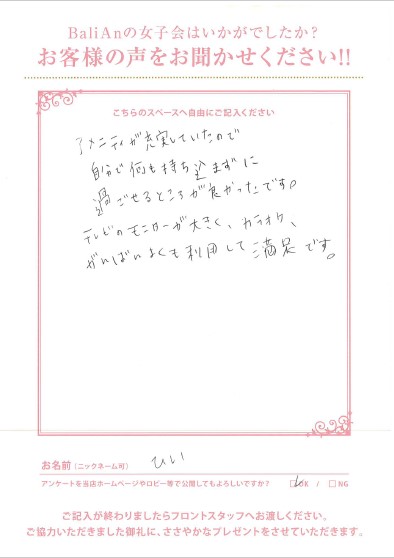 BaliAnの女子会はいかがでしたか?
お客様の声をお聞かせください!!
こちらのスペースへ自由にご記入ください
アメニティが充実していたので
自分で何も持ち込まずに
過ごせるところが良かったです。
テレビのモニターが大きく、カラオケ、
がんばんよくも利用して満足です。
お名前(ニックネーム可) ひい
アンケートを当店ホームページやロビー等で公開してもよろしいですか? □OK / □NG
ご記入が終わりましたらフロントスタッフへお渡しください。
ご協力いただきました御礼に、ささやかなプレゼントをさせていただきます。